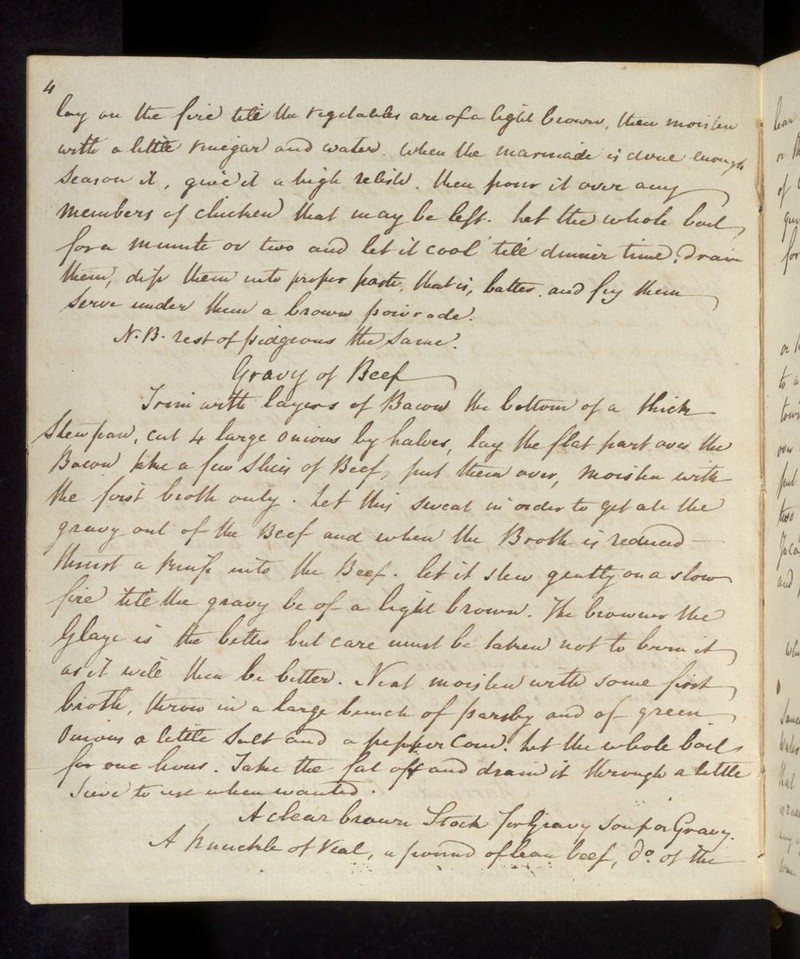 4
lay on the fire till the vegetables are of a light brown, then moisten
with a little vinegar and water. When the marinade is done enough
Season it, give it a high relish. then pour it over any
members of chicken that may be left. Let the whole boil
for a minute or two and let it cool till dinner time. drain
them, dip them into proper paste, that is, batter. and fry them
Serve under them a brown poivrade.
N.B. rest of pidgeons the same.
Gravy of Beef
Trim with layers of Bacon the bottom of a thick
Stewpan, cut 4 large onions by halves, lay the flat part over the
Bacon take a few slices of Beef, put them over, moisten with
the first broth only. Let this sweat in order to get all the
gravy out of the Beef and when the Broth is reduced
thrust a knife into the Beef. let it stew gently on a slow
fire till the gravy be of a light brown. The browner the
Glaze is the better but care must be taken not to burn it
as it will then be bitter. Next moisten with some first
broth, throw in a large bunch of parsley and of green
Onions a little Salt and a pepper Corn. Let the whole boil
for one hour. Take the fat off and drain it through a little
Sieve to use when wanted.
A clear brown Stock for Gravy Soup or Gravy.
A knuckle of Veal, a pound of lean beef, Do. of the